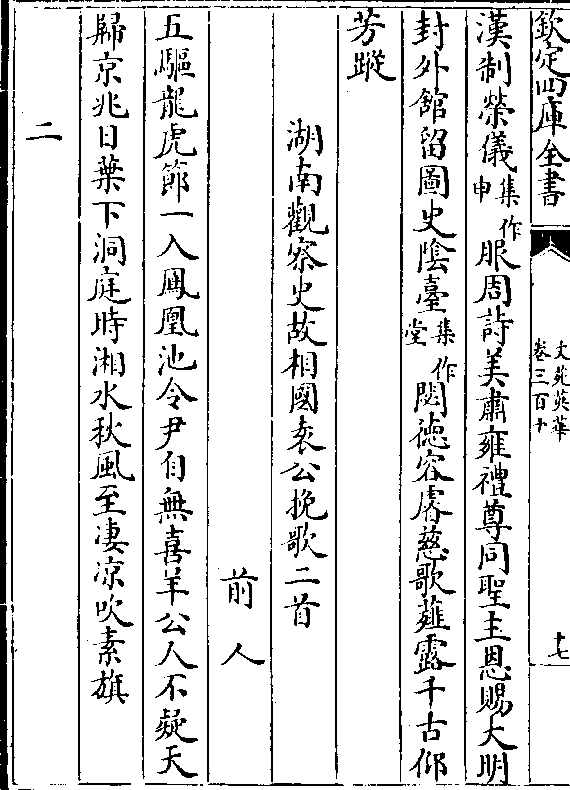 欽定四庫全書
文苑英華
卷三百十
十七
漢制榮儀集作申服周詩美肅雍禮尊同聖主恩賜大明
封外館留圖史陰臺集作堂閟德容睿慈歌薤露千古仰
芳蹤
湖南觀察史故相國袁公挽歌二首
前人
五驅龍虎節一入鳳凰池令尹自無喜羊公人不疑天
歸京兆日葉下洞庭時湘水秋風至凄凉吹素旗
二